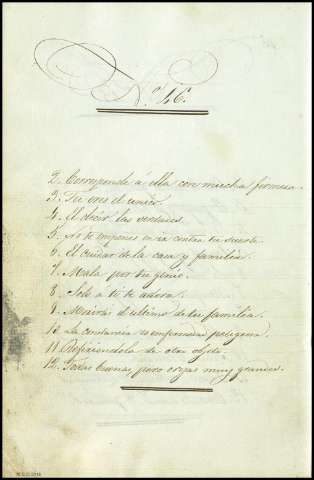 N.º 46.
2. Corresponde á ella con mucha firmeza.
3. Tu eres el unico.
4. El decir las verdades.
5. No te empeñes en ir contra tu suerte.
6. El cuidar de la casa y familia.
7. Mala por tu genio.
8. Solo á ti te adora.
9. Morirás el ultimo de tu familia.
10. La constancia
11. Refiriendola de otro objeto.
12. Todas buenas, pero orejas muy grandes.